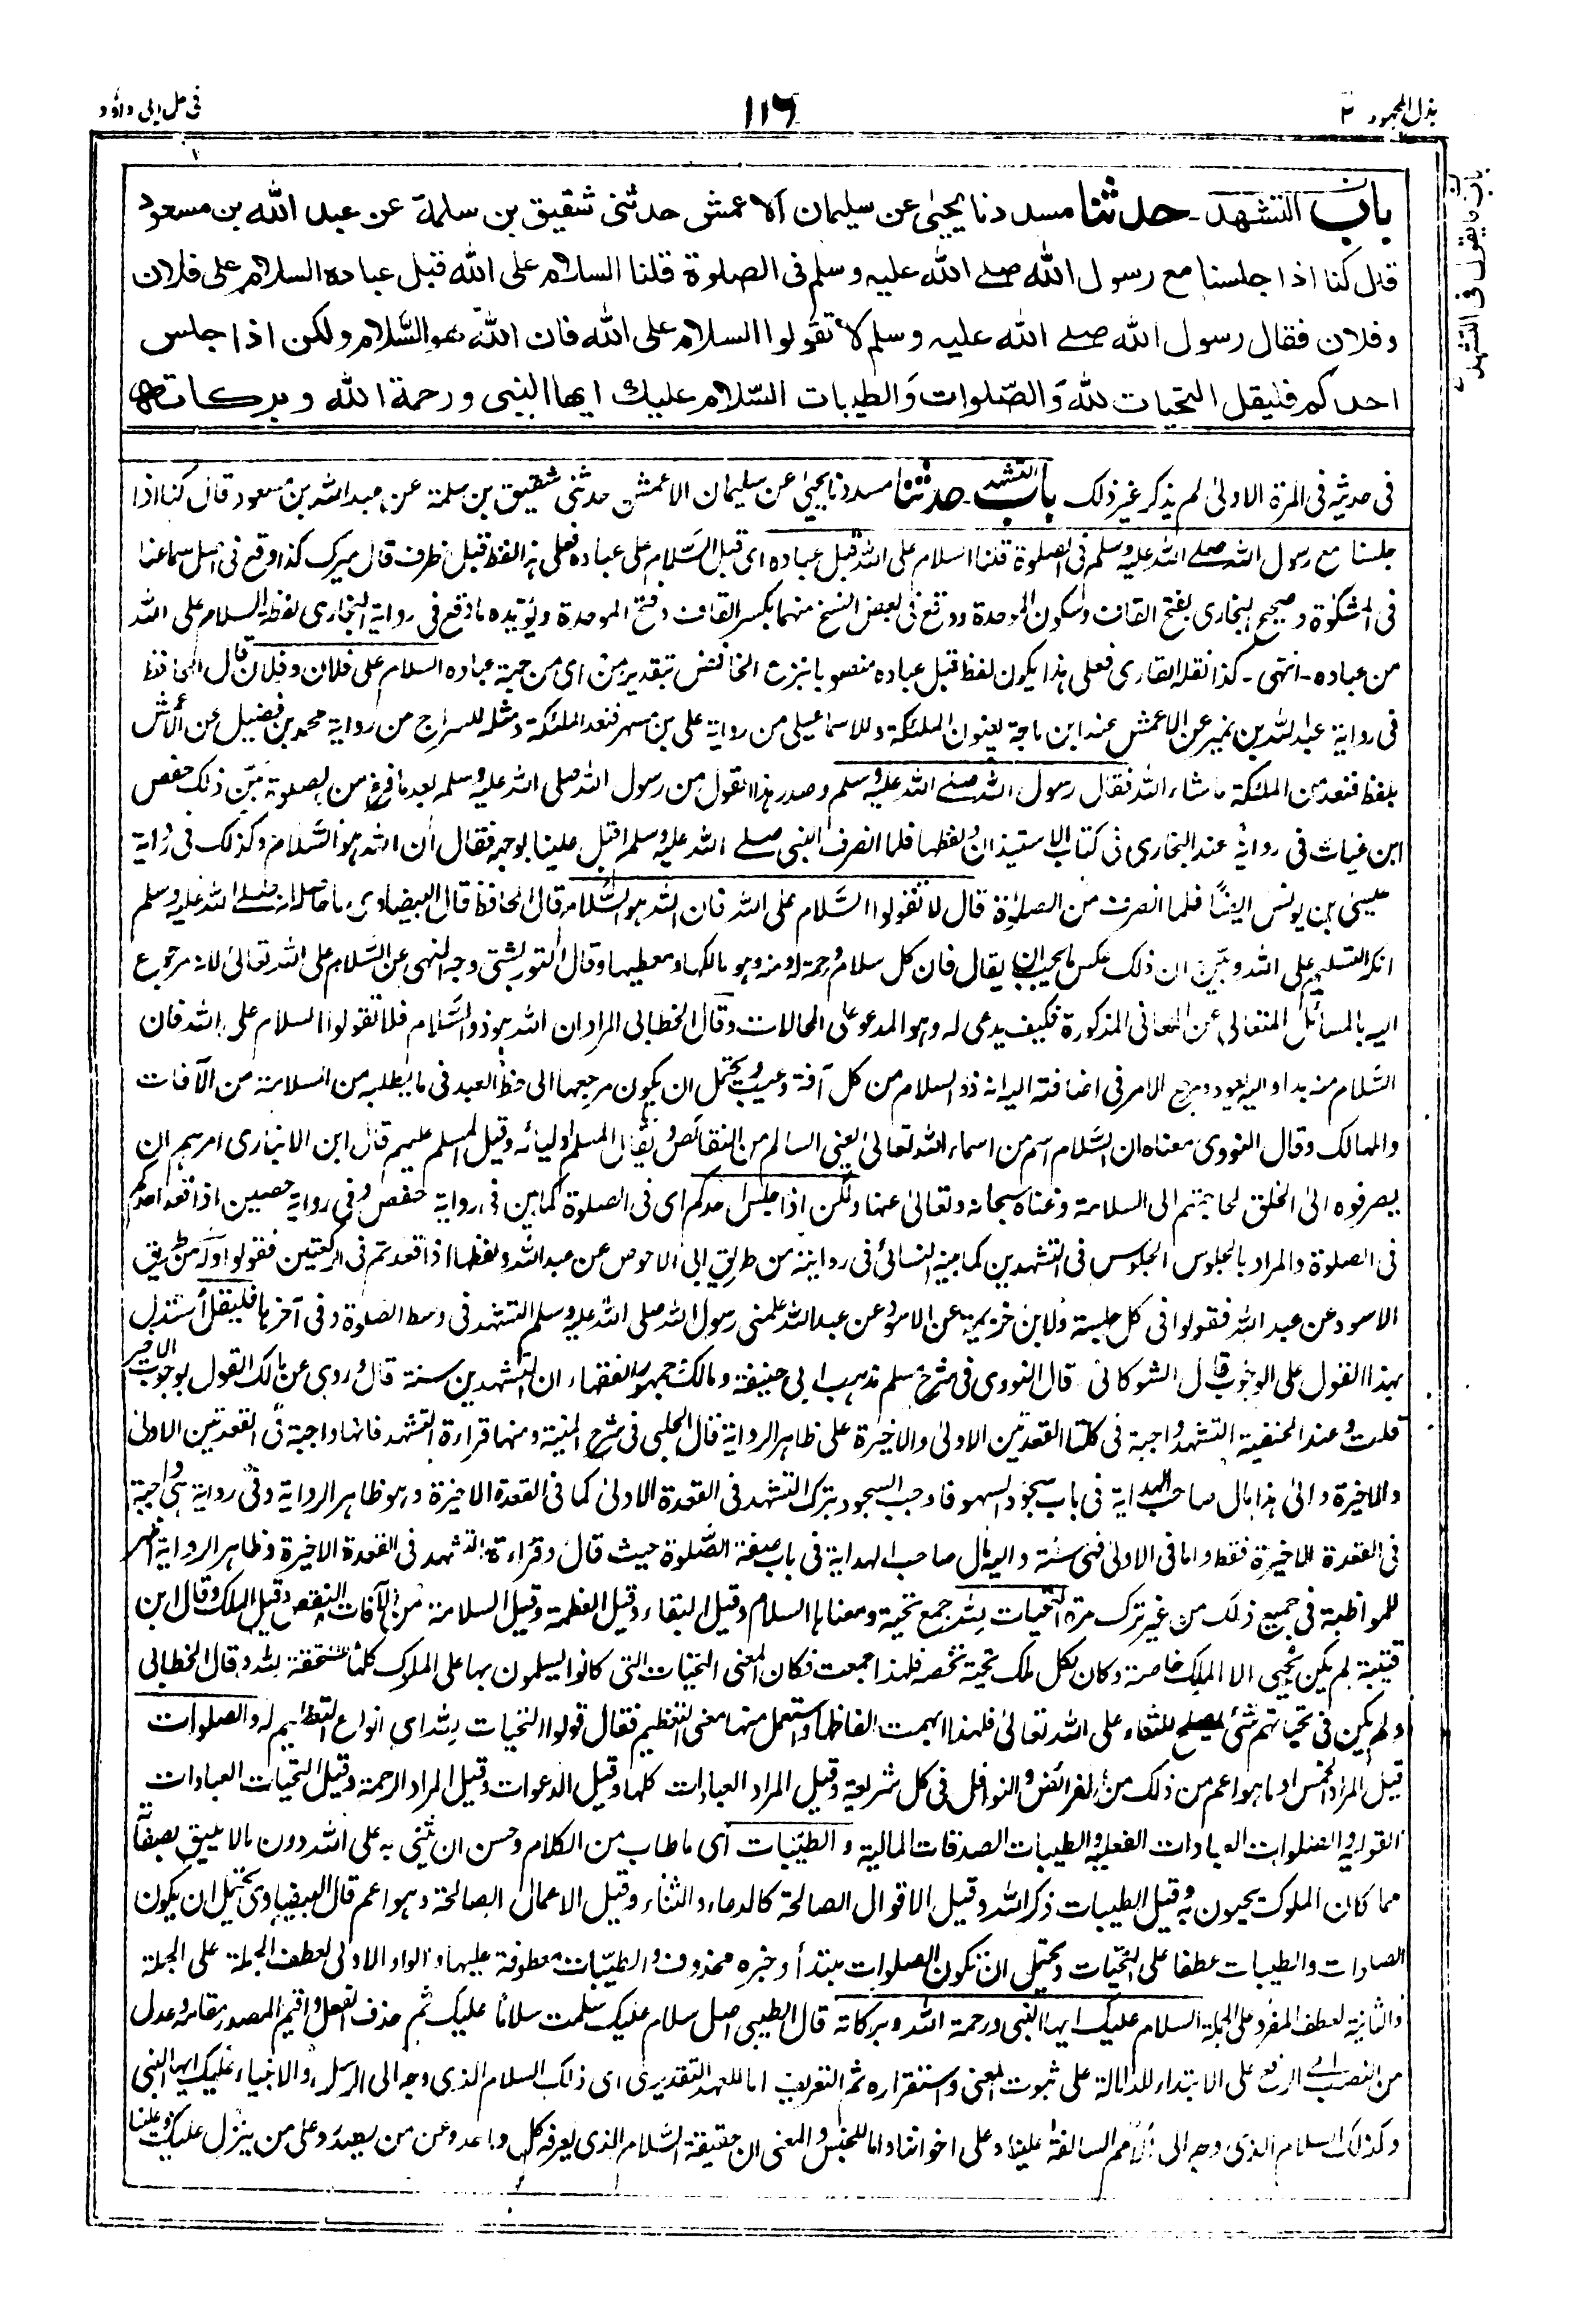 بذل المجهود ٢
١١٦
فی حل ابی داؤد
باب ما یقول فی التشهد
باب التشهد۔ حدثنا مسدد نا یحیی عن سلیمان الاعمش حدثنی شقیق بن سلمة عن عبد الله بن مسعود
قال کنا اذا جلسنا مع رسول الله صلے الله علیه وسلم فی الصلوة قلنا السلام علی الله قبل عباده السلام علی فلان
وفلان فقال رسول الله صلے الله علیه وسلم لا تقولوا السلام علی الله فان الله هو السّلام ولکن اذا جلس
احدکم فلیقل التحیات لله وَالصّلوات وَالطیبات السّلام علیك ایها النبی ورحمة الله وبرکاته
فی حدیثه فی المرة الاولیٰ لم یذکر غیر ذلک باب التشهد۔ حدثنا مسدد نا یحییٰ عن سلیمان الاعمش حدثنی شقیق بن سلمة عن عبد الله بن مسعود قال کنا اذا
جلسنا مع رسول الله صلے الله علیه وسلم فی الصلوة قلنا السلام علی الله قبل عباده ای قبل السّلام علی عباده فعلی هذا لفظ قبل ظرف قال میرک کذا وقع فی اصل سماعنا
فی المشکوٰة وصحیح البخاری بفتح القاف وسکون الموحدة ووقع فی بعض النسخ منهما بکسر القاف وفتح الموحدة ویؤیده ما وقع فی روایة البخاری بلفظ السلام علی الله
من عباده۔ انتهی۔ کذا نقله القاری فعلی هذا یکون لفظ قبل عباده منصوبا بنزع الخافض بتقدیر من ای من جهة عباده السلام علی فلان وفلان قال الحافظ
فی روایة عبد الله بن نمیر عن الاعمش عند ابن ماجة یعنون الملئکة وللاسماعیلی من روایة علی بن مسهر فنعد الملئکة ومثله للسراج من روایة محمد بن فضیل عن الاعمش
بلفظ فنعد من الملئکة ما شاء الله فقال رسول الله صلے الله علیه وسلم وصدر هذا القول من رسول الله صلی الله علیه وسلم بعد ما فرغ من الصلوة بیّن ذلک حفص
ابن غیاث فی روایة عند البخاری فی کتاب الاستیذان ولفظها فلما انصرف النبی صلے الله علیه وسلم اقبل علینا بوجهه فقال ان الله هو السّلام وکذلک فی روایة
عیسیٰ بن یونس ایضًا فلما انصرف من الصلوٰة قال لا تقولوا السّلام علی الله فان الله هو السّلام قال الحافظ قال البیضاوی ما حاصله انه صلے الله علیه وسلم
انکر التسلیم علی الله وبیّن ان ذلک عکس ما یجب ان یقال فان کل سلام ورحمة له ومنه وهو مالکها ومعطیها وقال التوربشتی وجه النهی عن السّلام علی الله تعالیٰ لانه مرجوع
الیه بالمسائل المتعالی عن المعانی المذکورة فکیف یدعی له وهو المدعو علی الحالات وقال الخطابی المراد ان الله هو ذو السَّلام فلا تقولوا السلام علی الله فان
السّلام منه بدا والیه یعود ومرجع الامر فی اضافته الیه انه ذو السلام من کل آفة وعیب ویحتمل ان یکون مرجعها الی حظ العبد فی ما یطلبه من السلامة من الآفات
والمهالک وقال النووی معناه ان السّلام اسم من اسماء الله تعالیٰ یعنی السالم من النقائص ویقال المسلم اولیائه وقیل المسلم علیهم قال ابن الانباری امرهم ان
یصرفوه الیٰ الخلق لحاجتهم الی السلامة وغناه سبحانه وتعالیٰ عنها ولکن اذا جلس احدکم ای فی الصلوة کما بین فی روایة حفص وفی روایة حصین اذا قعد احدکم
فی الصلوة والمراد بالجلوس الجلوس فی التشهدین کما بینه النسائی فی روایته من طریق ابی الاحوص عن عبد الله ولفظها اذا قعدتم فی الرکعتین فقولوا وله من طریق
الاسود عن عبد الله فقولوا فی کل جلسة ولابن خزیمة عن الاسود عن عبد الله علمنی رسول الله صلی الله علیه وسلم التشهد فی وسط الصلوة وفی آخرها فلیقل استدل
بهذا القول علی الوجوب قال الشوکانی قال النووی فی شرح مسلم مذهب ابی حنیفة ومالک وجمهور الفقهاء ان التشهدین سنة قال وروی عن مالک القول بوجوب الاخیر
قلت وعند الحنفیة التشهد واجبة فی کلتا القعدتین الاولیٰ والاخیرة علی ظاهر الروایة قال الحلبی فی شرح المنیة ومنها قراءة التشهد فانها واجبة فی القعدتین الاولیٰ
والاخیرة والیٰ هذا مال صاحب الهدایة فی باب سجود السهو فاوجب السجود بترک التشهد فی القعدة الاولیٰ کما فی القعدة الاخیرة وهو ظاهر الروایة وفی روایة هی واجبة
فی القعدة الاخیرة فقط واما فی الاولیٰ فهی سنة والیه مال صاحب الهدایة فی باب صفة الصّلوة حیث قال وقراءة التشهد فی القعدة الاخیرة وظاهر الروایة اظهر
للمواظبة فی جمیع ذلک من غیر ترک مرة التحیات لله جمع تحیة ومعناها السلام وقیل البقاء وقیل العظمة وقیل السلامة من الآفات والنقص وقیل الملک وقال ابن
قتیبة لم یکن یُحیّی الا الملک خاصة وکان لکل ملک تحیة تخصه فلهذا جمعت فکان المعنی التحیات التی کانوا یسلمون بها علی الملوک کلها مستحقة لله وقال الخطابی
ولم یکن فی تحیاتهم شئ یصلح للثناء علی الله تعالیٰ فلهذا ابهمت الفاظها واستعمل منها معنی التعظیم فقال قولوا التحیات لله ای انواع التعظیم له والصلوات
قیل المراد الخمس او ما هو اعم من ذلک من الفرائض والنوافل فی کل شریعة وقیل المراد العبادات کلها وقیل الدعوات وقیل المراد الرحمة وقیل التحیات العبادات
القولیة والصلوات العبادات الفعلیة والطیبات الصدقات المالیة والطیّبات ای ما طاب من الکلام وحسن ان یثنی به علی الله دون ما لا یلیق بصفاته
مما کان الملوک یحیون به وقیل الطیبات ذکر الله وقیل الاقوال الصالحة کالدعاء والثناء وقیل الاعمال الصالحة وهو اعم قال البیضاوی یحتمل ان یکون
الصلوات والطیبات عطفا علی التحیات ویحتمل ان تکون الصلوات مبتدأ وخبره محذوف والطیّبات معطوفة علیها والواو الاولی لعطف الجملة علی الجملة
والثانیة لعطف المفرد علی الجملة السلام علیک ایها النبی ورحمة الله وبرکاته قال الطیبی اصل سلام علیک سلمت سلامًا علیک ثم حذف الفعل واقیم المصدر مقامه وعدل
من النصب الی الرفع علی الابتداء للدلالة علی ثبوت المعنی واستقراره ثم التعریف اما للعهد التقدیری ای ذلک السلام الذی وجه الی الرسل والانبیاء علیک ایها النبی
وکذلک السلام الذی وجه الی الامم السالفة علینا وعلی اخواننا واما للجنس والمعنی ان حقیقة السّلام الذی یعرفه کل واحد وعن من یصدر وعلی من ینزل علیک وعلینا